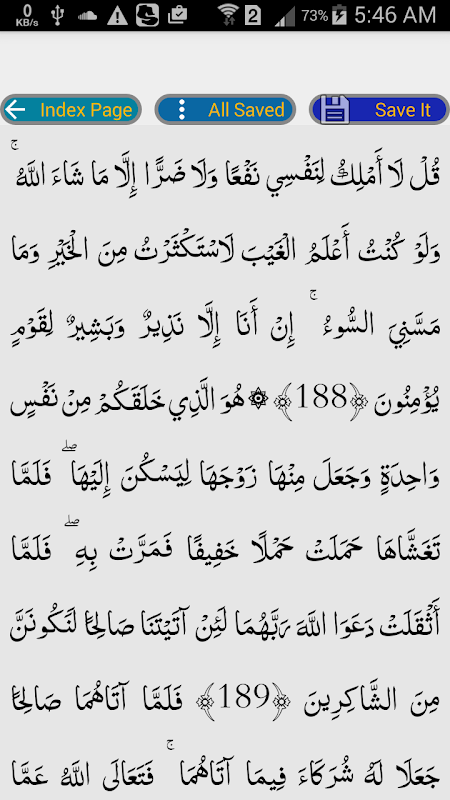 0 KB/s 2 73% 5:46 AM
Index Page All Saved Save It
قُلْ لَا أَمْلِكُ لِنَفْسِي نَفْعًا وَلَا ضَرًّا إِلَّا مَا شَاءَ اللَّهُ ۚ
وَلَوْ كُنْتُ أَعْلَمُ الْغَيْبَ لَاسْتَكْثَرْتُ مِنَ الْخَيْرِ وَمَا
مَسَّنِيَ السُّوءُ ۚ إِنْ أَنَا إِلَّا نَذِيرٌ وَبَشِيرٌ لِقَوْمٍ
يُؤْمِنُونَ ﴿188﴾ ۞ هُوَ الَّذِي خَلَقَكُمْ مِنْ نَفْسٍ
وَاحِدَةٍ وَجَعَلَ مِنْهَا زَوْجَهَا لِيَسْكُنَ إِلَيْهَا ۖ فَلَمَّا
تَغَشَّاهَا حَمَلَتْ حَمْلًا خَفِيفًا فَمَرَّتْ بِهِ ۖ فَلَمَّا
أَثْقَلَتْ دَعَوَا اللَّهَ رَبَّهُمَا لَئِنْ آتَيْتَنَا صَالِحًا لَنَكُونَنَّ
مِنَ الشَّاكِرِينَ ﴿189﴾ فَلَمَّا آتَاهُمَا صَالِحًا
جَعَلَا لَهُ شُرَكَاءَ فِيمَا آتَاهُمَا ۚ فَتَعَالَى اللَّهُ عَمَّا